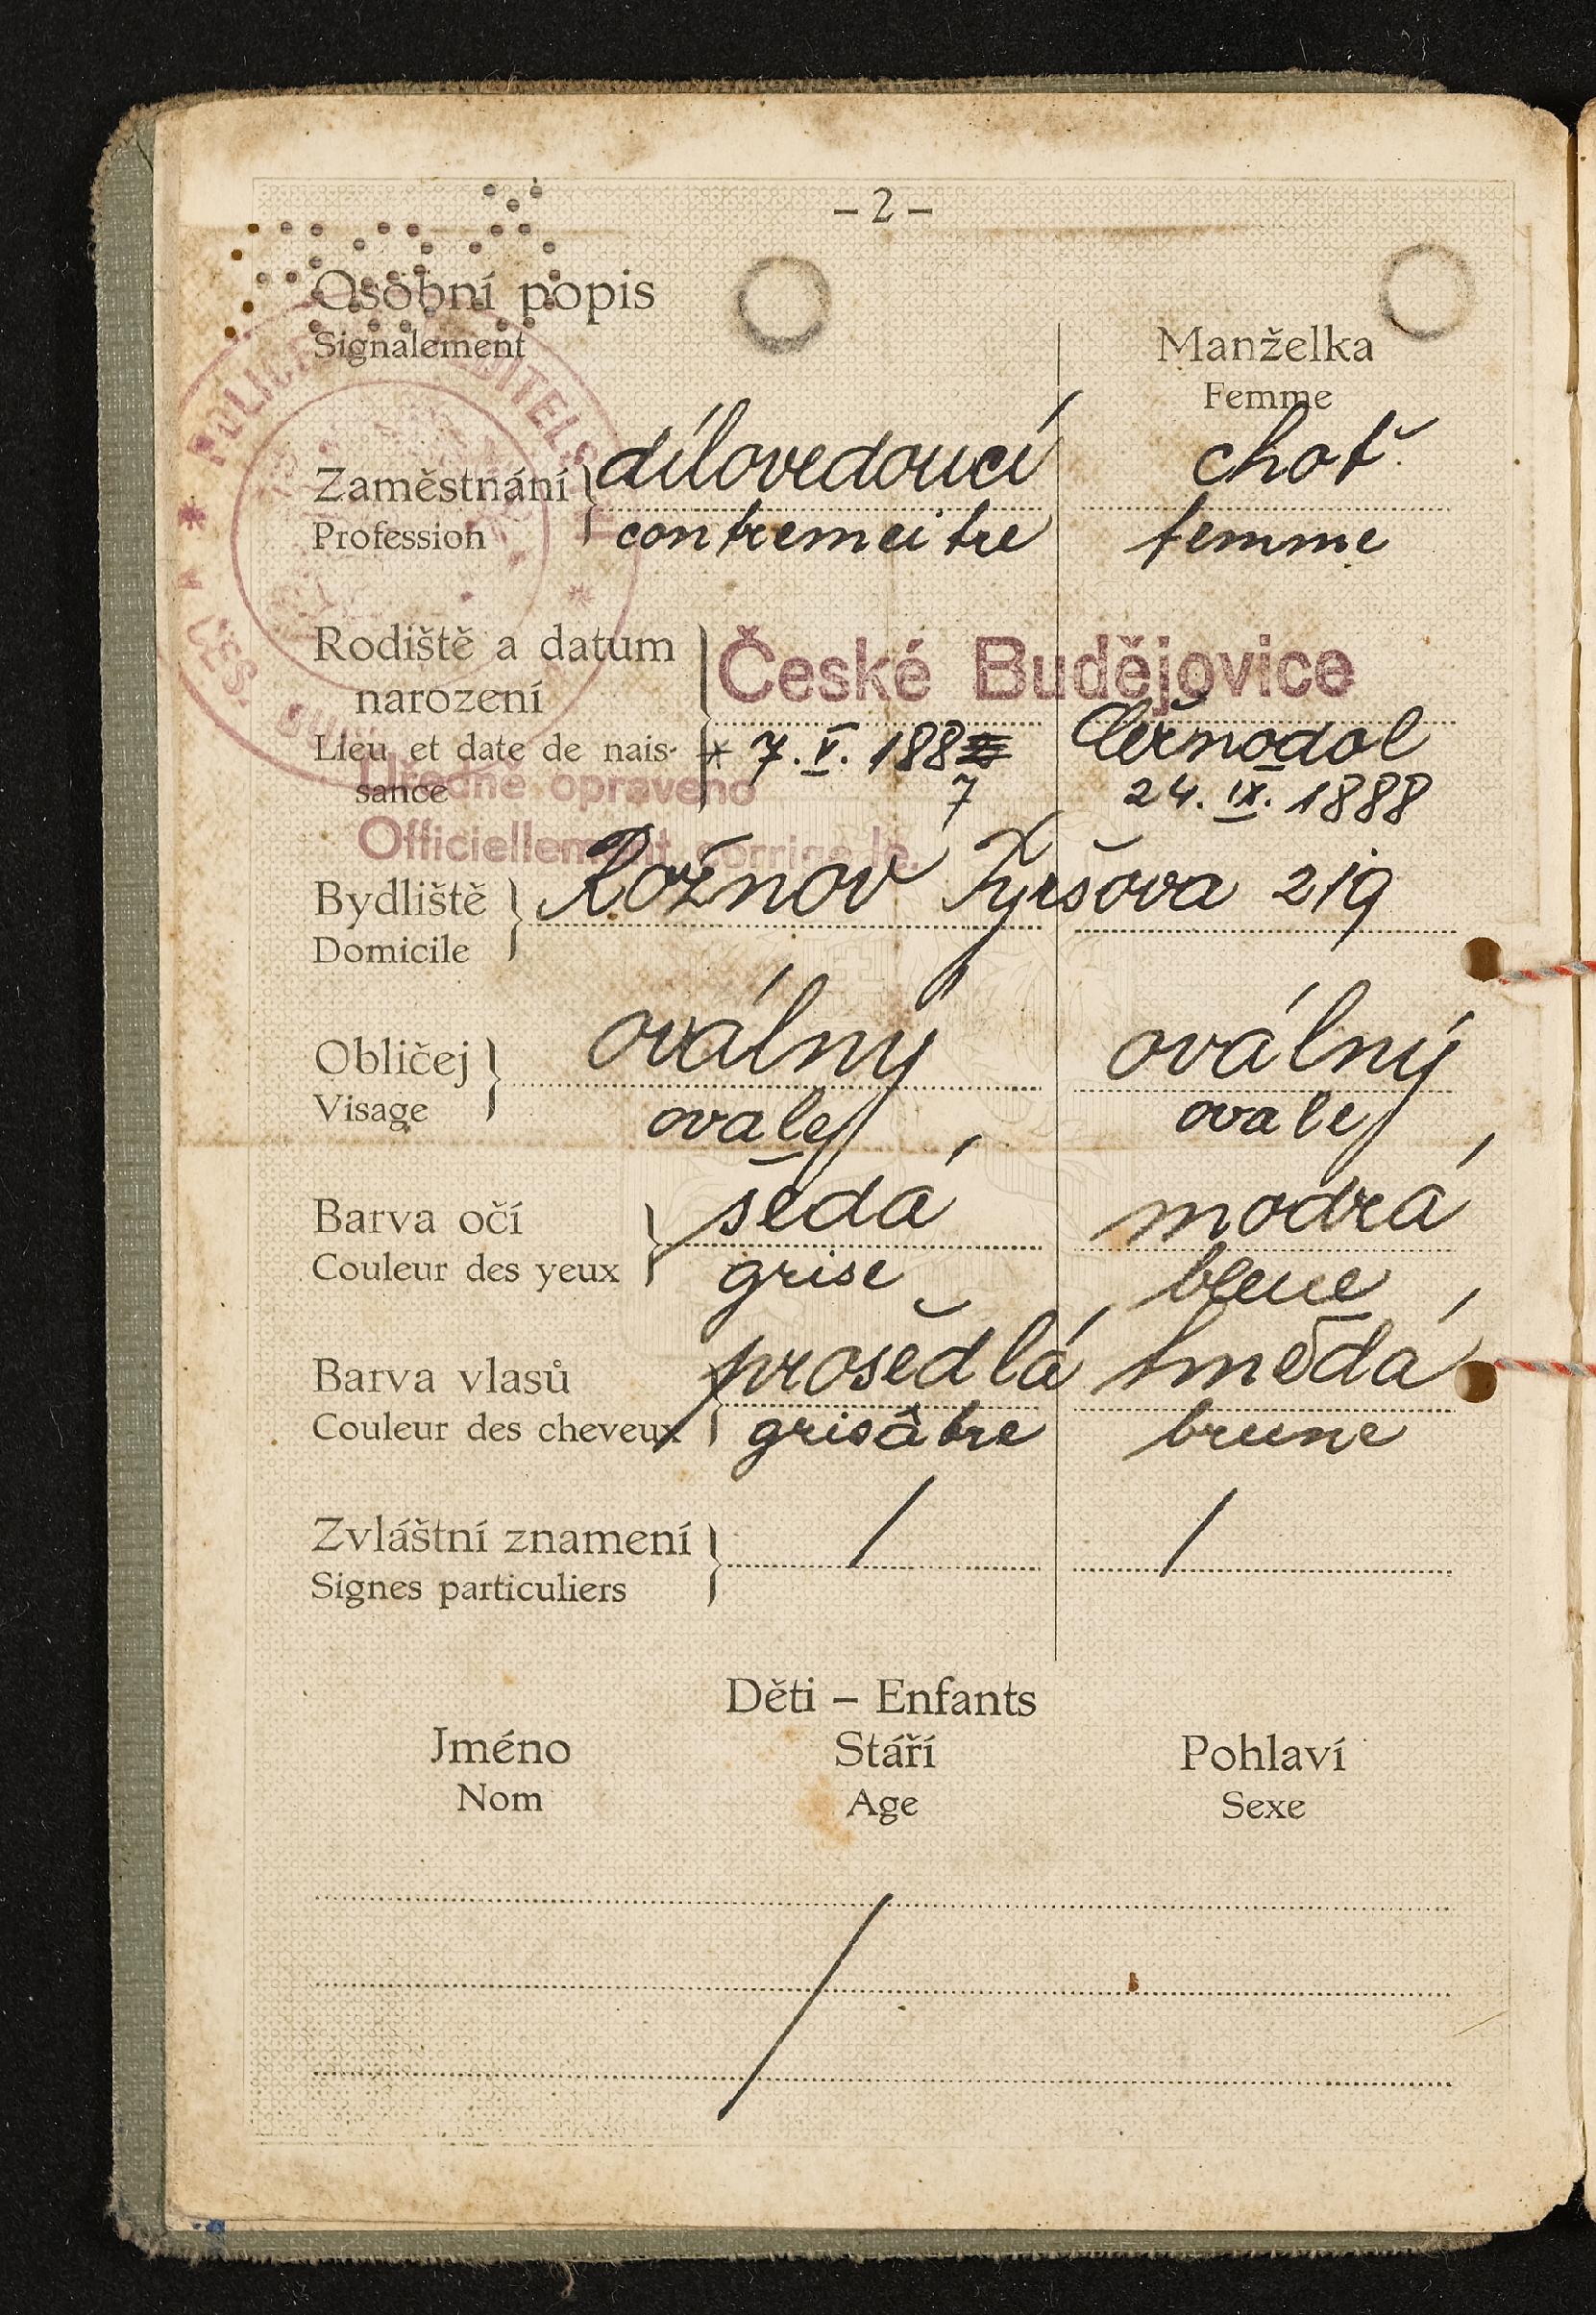 – 2 –
Osobní popis
Signalement
Manželka
Femme
Zaměstnání dílovedoucí choť.
Profession contremeitre femme
Rodiště a datum České Budějovice
narození
Lieu et date de nais- * 7. V. 188 Černodol
sance 7 24. IX. 1888
Úředně opraveno
Officiellement corrigé le.
Bydliště Rožnov Tyršova 219
Domicile
Obličej oválný oválný
Visage ovale ovale
Barva očí šedá modrá
Couleur des yeux grise bleue
Barva vlasů prošedlá hnědá
Couleur des cheveux grisâtre brune
Zvláštní znamení / /
Signes particuliers
Děti – Enfants
Jméno Stáří Pohlaví
Nom Age Sexe
/